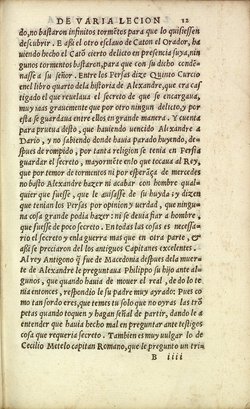 DE VARIA LECION 12
do, no bastaron infinitos tormẽtos para que lo quisiessen
descubrir. E assi el otro esclauo de Caton el Orador, ha
uiendo hecho el Catõ cierto delicto en presencia suya, nin
gunos tormentos bastaron, para que con su dicho condẽ-
nasse a su señor. Entre los Persas dize Quinto Curcio
en el libro quarto dela historia de Alexandre, que era cas
tigado el que reuelaua el secreto de que se encargaua,
muy mas grauemente que por otro ningun delicto, y por
esta se guardaua entre ellos en grande manera. Y cuenta
para prueua desto, que hauiendo vencido Alexandre a
Dario, y no sabiendo donde hauia parado huyendo, des-
pues de rompido, por tanta religion se tenia en Persia
guardar el secreto, mayormẽte enlo que tocaua al Rey,
que por temor de tormentos ni por esperãça de mercedes
no basto Alexandre hazer ni acabar con hombre qualqu
ier que fuesse, que le auisasse de su huyda: y dizen
que tenian los Persas por opinion y verdad, que ningu-
na cosa grande podia hazer: ni se deuia fiar a hombre,
que fuesse de poco secreto. Entodas las cosas es necessa-
rio el secreto y enla guerra mas que en otra parte, y
assi se preciaron del los antiguos Capitanes excelentes.
Al rey Antigono q̃ fue de Macedonia despues dela muer
te de Alexandre le preguntaua Philippo su hijo ante al-
gunos, que quando hauia de mouer el real, de do lo te
nia entonces, respondio le su padre muy ayrado: Pues co
mo tan sordo eres, que temes tu solo que no oyras las trõ
petas quando toquen y hagan señal de partir, dando le a
entender que hauia hecho mal en preguntar ante testigos
cosa que requeria secreto. Tambien es muy vulgar lo de
Cecilio Metelo capitan Romano, que le pregunto un tri
B iiii